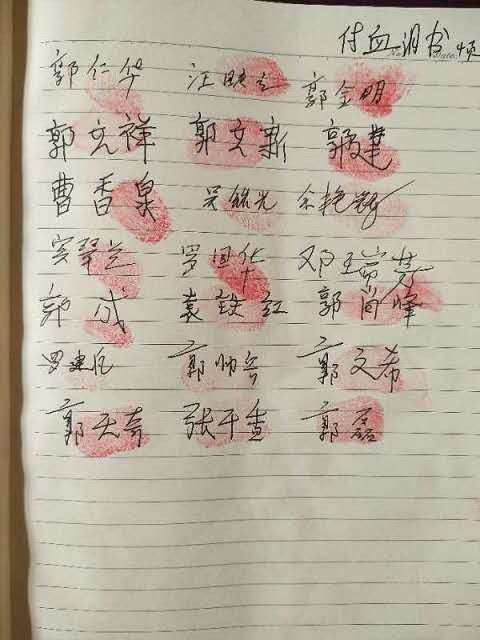 付血泪书 4页
郭仁华 汪映兰 郭金明
郭完祥 郭文新 郭建
曹香泉 吴铭光 余艳辉
罗国华 邓玉嵩芳
郭成 袁铁红 郭尚峰
罗建民 郭帅兵 郭文希
郭天奇 张千香 郭磊